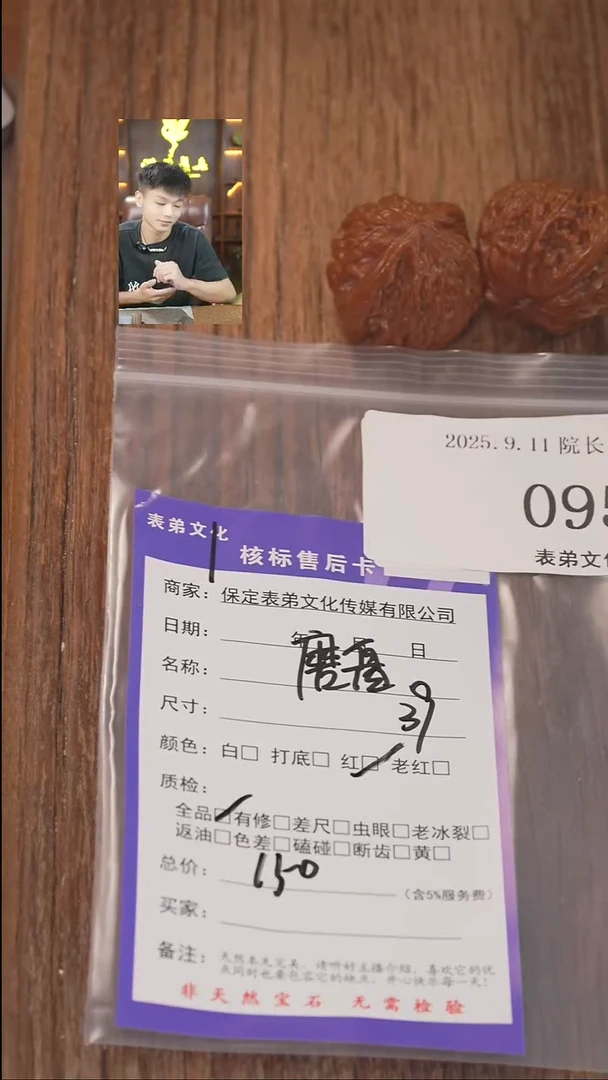 2025.9.11 院长
095
表弟文化
表弟文化
核标售后卡
商家：保定表弟文化传媒有限公司
日期： 年 月 日
名称： 磨盘
尺寸： 39
颜色：白□ 打底□ 红□ 老红□
质检：
全品□有修□差尺□虫眼□老冰裂□
返油□色差□磕碰□断齿□黄□
总价： 150 （含5%服务费）
买家：
备注：天然本无完美，请听好主播介绍，喜欢它的优
点同时也要包容它的缺点，开心快乐每一天！
非天然宝石 无需检验